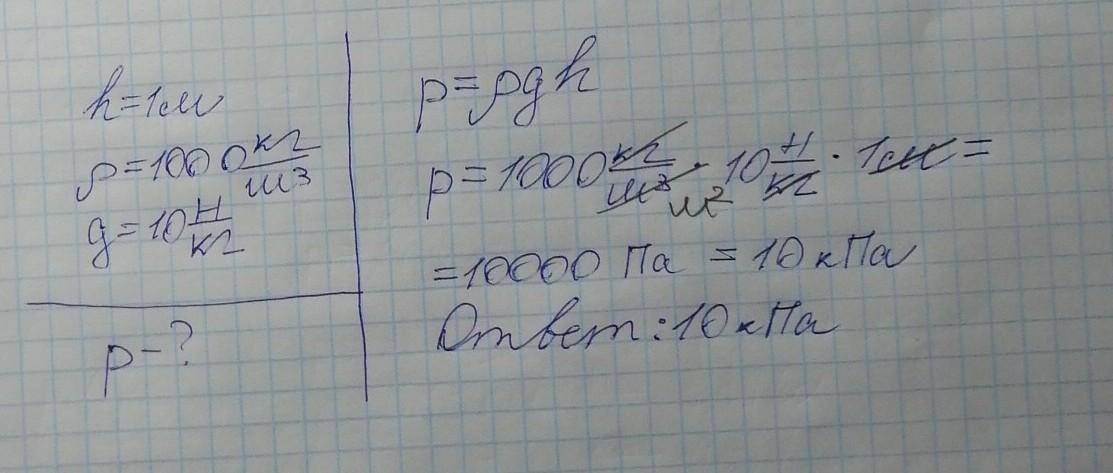 h=1м
ρ=1000 кг/м³
g=10 Н/кг
p-?
p=ρgh
p=1000 кг/м³ м² · 10 Н/кг · 1м=
=10000 Па = 10кПа
Ответ: 10кПа